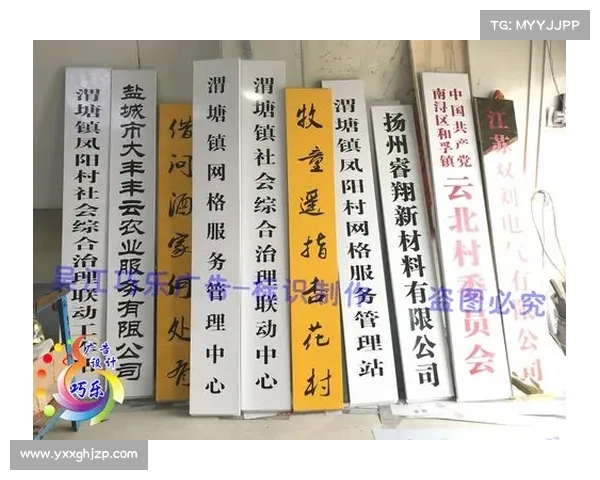 TG: MYYJJPP
渭塘镇凤阳村社会综合治理联动工
盐城市大丰丰云农业服务有限公司
借问酒家何处有
渭塘镇网格服务管理中心
渭塘镇社会综合治理联动中心
牧童遥指杏花村
渭塘镇凤阳村网格服务管理站
扬州睿翔新材料有限公司
中国共产党
南浔区和孚镇
云北村委员会
江苏双刘电气有限公司
吴江巧乐广告-标识制作 盗图必究
广告
设计
巧乐
www.yxxghjzp.com